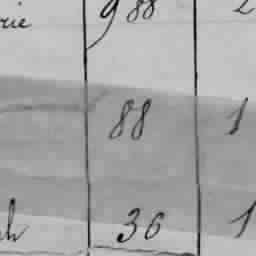 rie 988 2
88 1
h 36 1